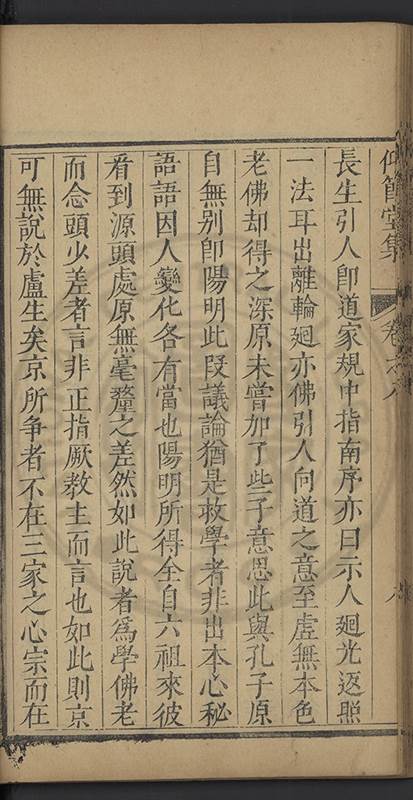 仰節堂集 卷之八 八
長生引人卽道家規中指南序亦曰示人廻光返照
一法耳出離輪廻亦佛引人向道之意至虛無本色
老佛却得之深原未嘗加了些子意思此與孔子原
自無别卽陽明此段議論猶是救學者非出本心秘
語語因人變化各有當也陽明所得全自六祖來彼
看到源頭處原無毫釐之差然如此說者爲學佛老
而念頭少差者言非正指厥教主而言也如此則京
可無說於盧生矣京所争者不在三家之心宗而在